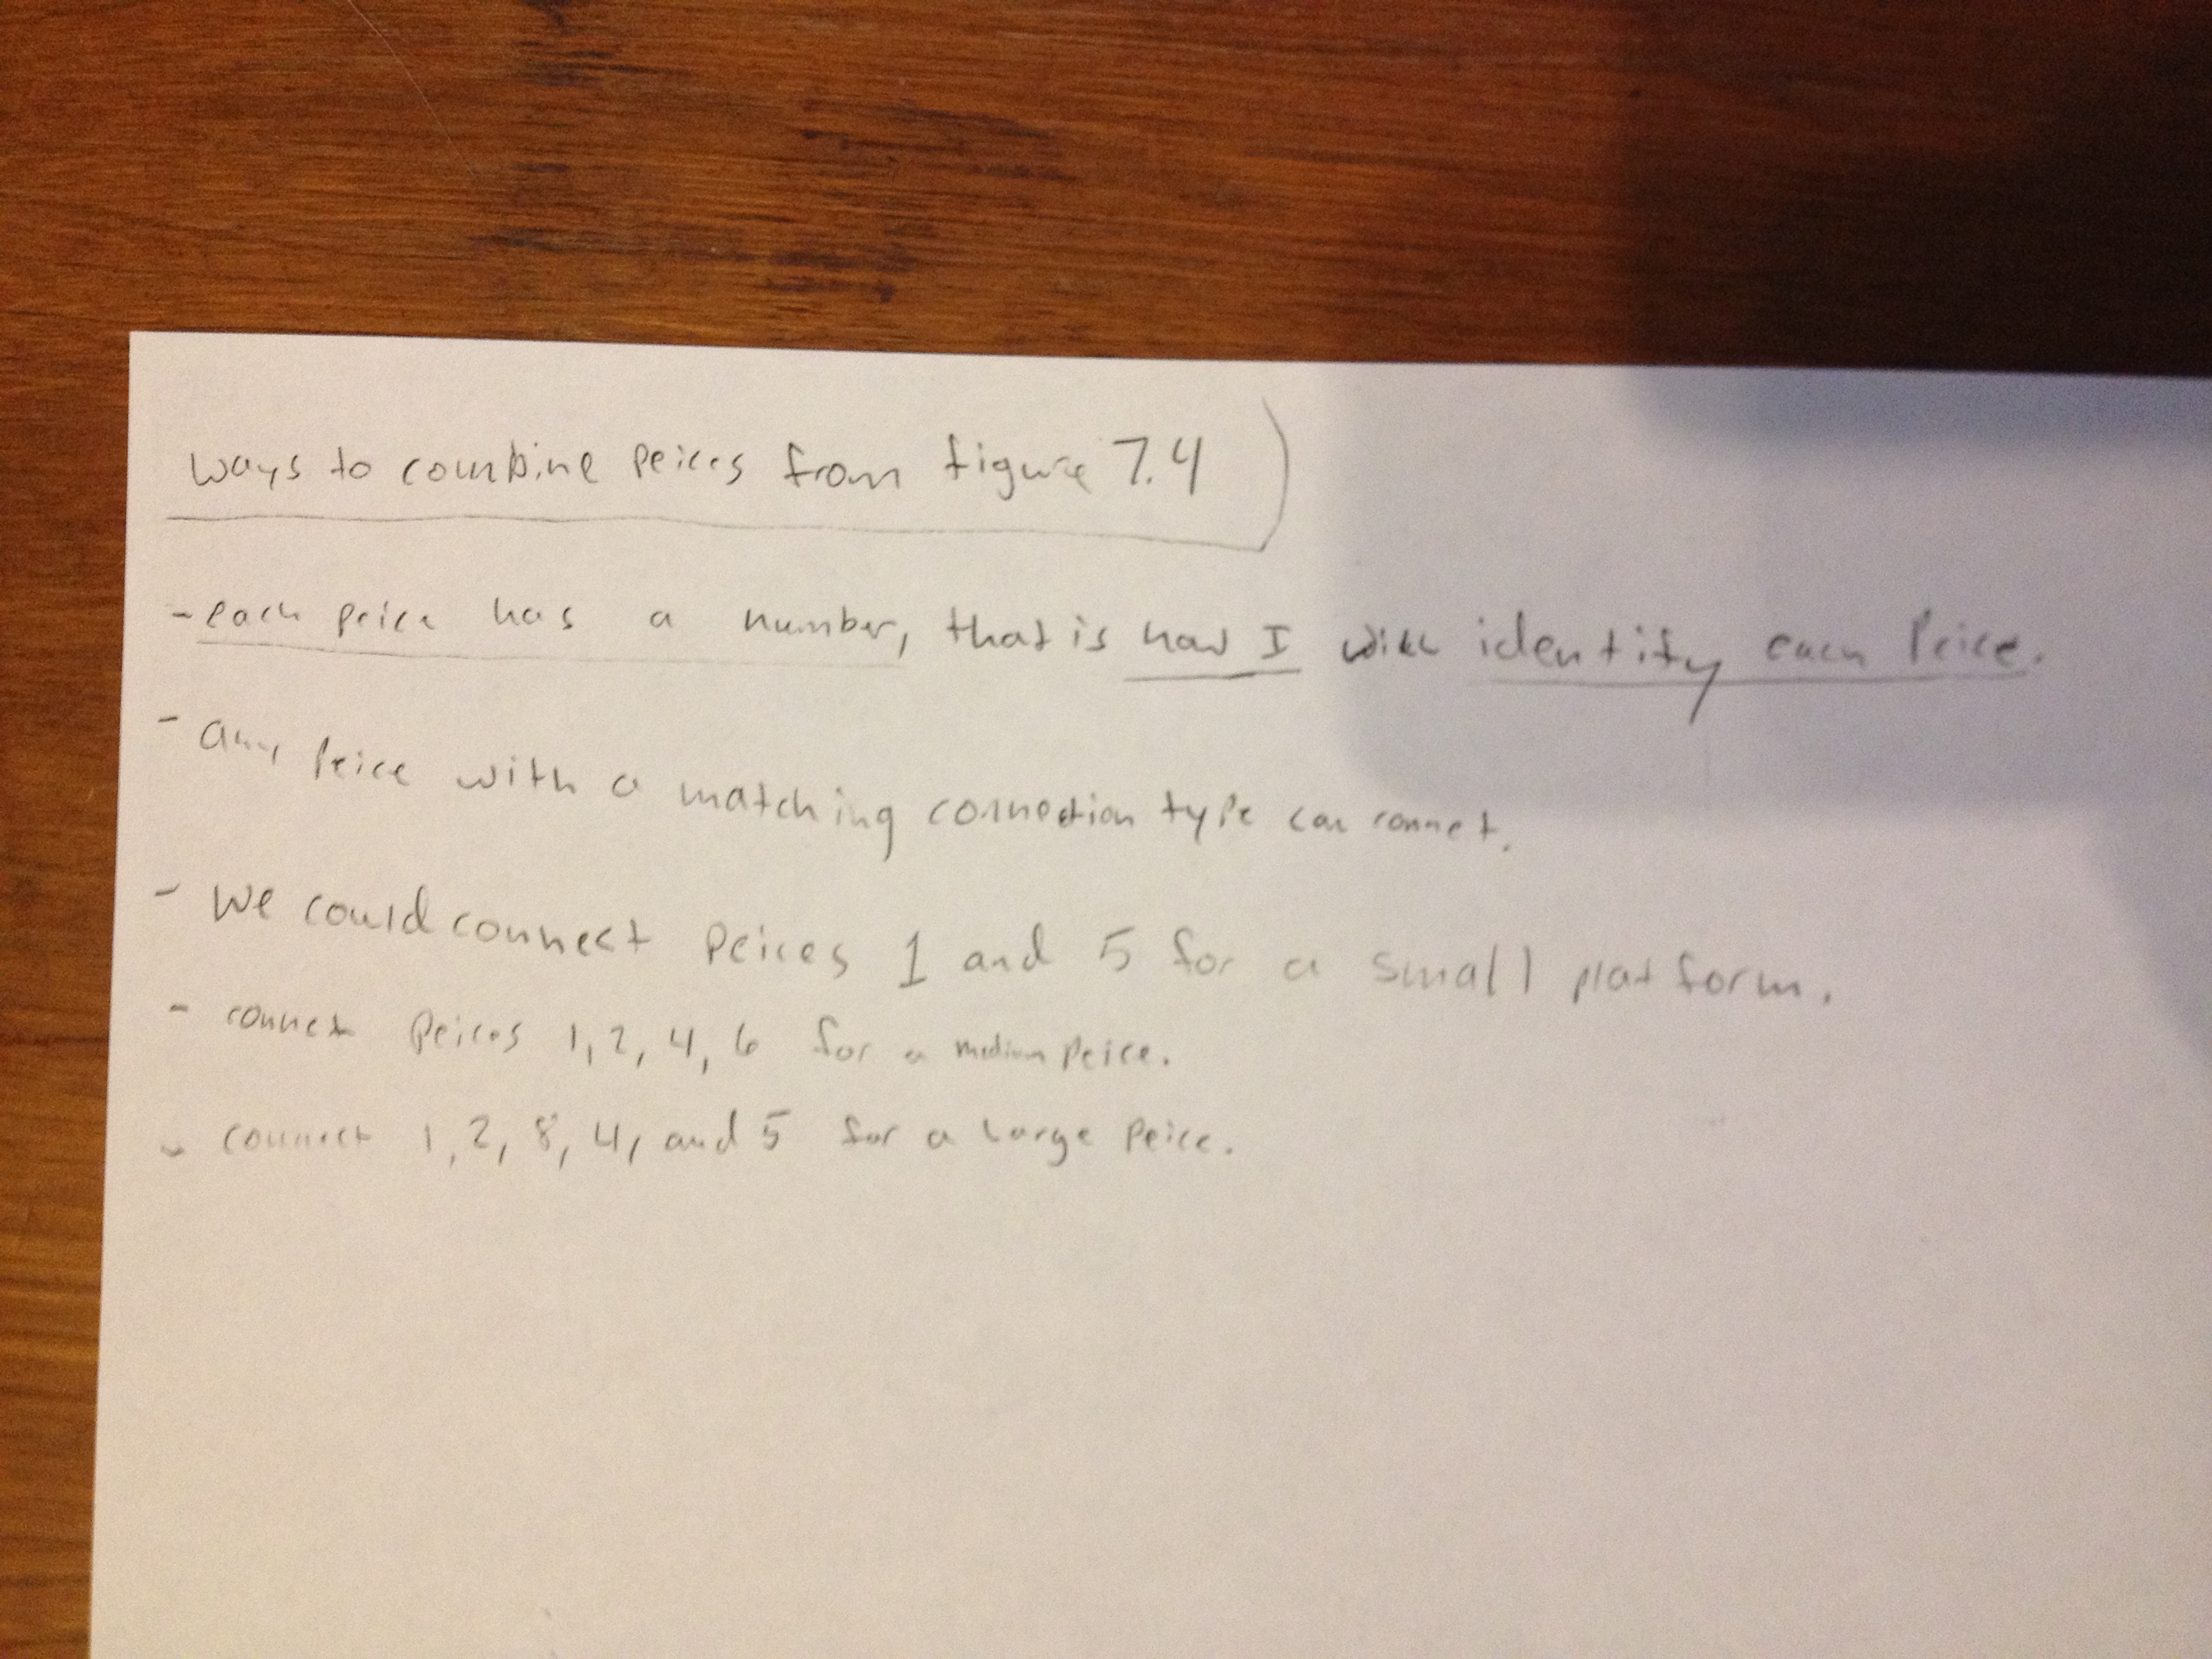 Ways to combine peices from figure 7.4
- each peice has a number, that is how I will identify each peice.
- any peice with a matching connection type can connect.
- We could connect peices 1 and 5 for a small platform.
- connect peices 1, 2, 4, 6 for a medium peice.
- connect 1, 2, 8, 4, and 5 for a large peice.